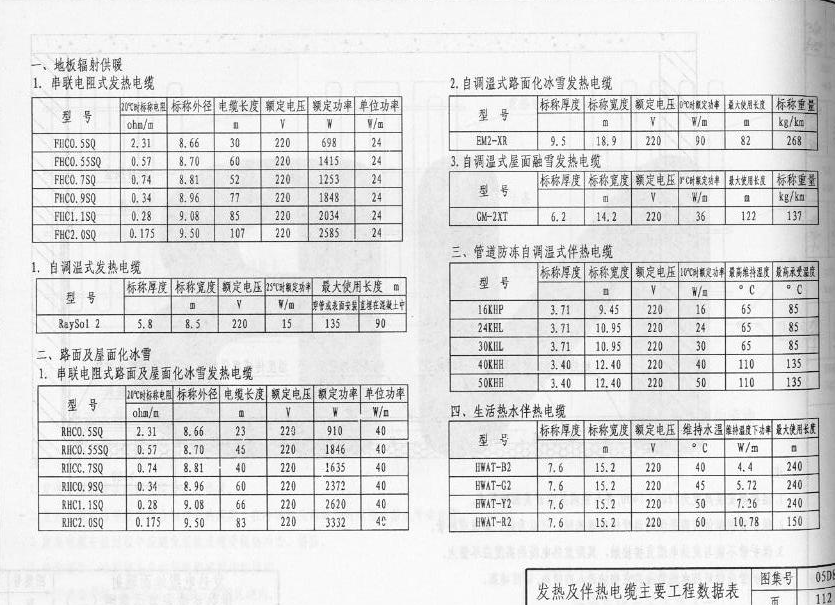 一、地板辐射供暖
1. 串联电阻式发热电缆
型 号 20℃时标称电阻 标称外径 电缆长度 额定电压 额定功率 单位功率
ohm/m m V W W/m
FHC0.5SQ 2.31 8.66 30 220 698 24
FHC0.55SQ 0.57 8.70 60 220 1415 24
FHC0.7SQ 0.74 8.81 52 220 1253 24
FHC0.9SQ 0.34 8.96 77 220 1848 24
FHC1.1SQ 0.28 9.08 85 220 2034 24
FHC2.0SQ 0.175 9.50 107 220 2585 24
1. 自调温式发热电缆
型 号 标称厚度 标称宽度 额定电压 25℃时额定功率 最大使用长度 m
m V W/m 穿管或表面安装 直埋在混凝土中
RaySol 2 5.8 8.5 220 15 135 90
二、路面及屋面化冰雪
1. 串联电阻式路面及屋面化冰雪发热电缆
型 号 20℃时标称电阻 标称外径 电缆长度 额定电压 额定功率 单位功率
ohm/m m V W W/m
RHC0.5SQ 2.31 8.66 23 220 910 40
RHC0.55SQ 0.57 8.70 45 220 1846 40
RHCC.7SQ 0.74 8.81 40 220 1635 40
RHC0.9SQ 0.34 8.96 60 220 2372 40
RHC1.1SQ 0.28 9.08 66 220 2620 40
RHC2.0SQ 0.175 9.50 83 220 3332 40
2.自调温式路面化冰雪发热电缆
型 号 标称厚度 标称宽度 额定电压 0℃时额定功率 最大使用长度 标称重量
m V W/m m kg/km
EM2-XR 9.5 18.9 220 90 82 268
3.自调温式屋面融雪发热电缆
型 号 标称厚度 标称宽度 额定电压 0℃时额定功率 最大使用长度 标称重量
m V W/m m kg/km
GM-2XT 6.2 14.2 220 36 122 137
三、管道防冻自调温式伴热电缆
型 号 标称厚度 标称宽度 额定电压 10℃时额定功率 最高维持温度 最高承受温度
m V W/m °C °C
16KHP 3.71 9.45 220 16 65 85
24KHL 3.71 10.95 220 24 65 85
30KHL 3.71 10.95 220 30 65 85
40KHH 3.40 12.40 220 40 110 135
50KHH 3.40 12.40 220 50 110 135
四、生活热水伴热电缆
型 号 标称厚度 标称宽度 额定电压 维持水温 维持温度下功率 最大使用长度
m V °C W/m m
HWAT-B2 7.6 15.2 220 40 4.4 240
HWAT-G2 7.6 15.2 220 45 5.72 240
HWAT-Y2 7.6 15.2 220 50 7.26 240
HWAT-R2 7.6 15.2 220 60 10.78 150
发热及伴热电缆主要工程数据表 图集号 05D8
页 112